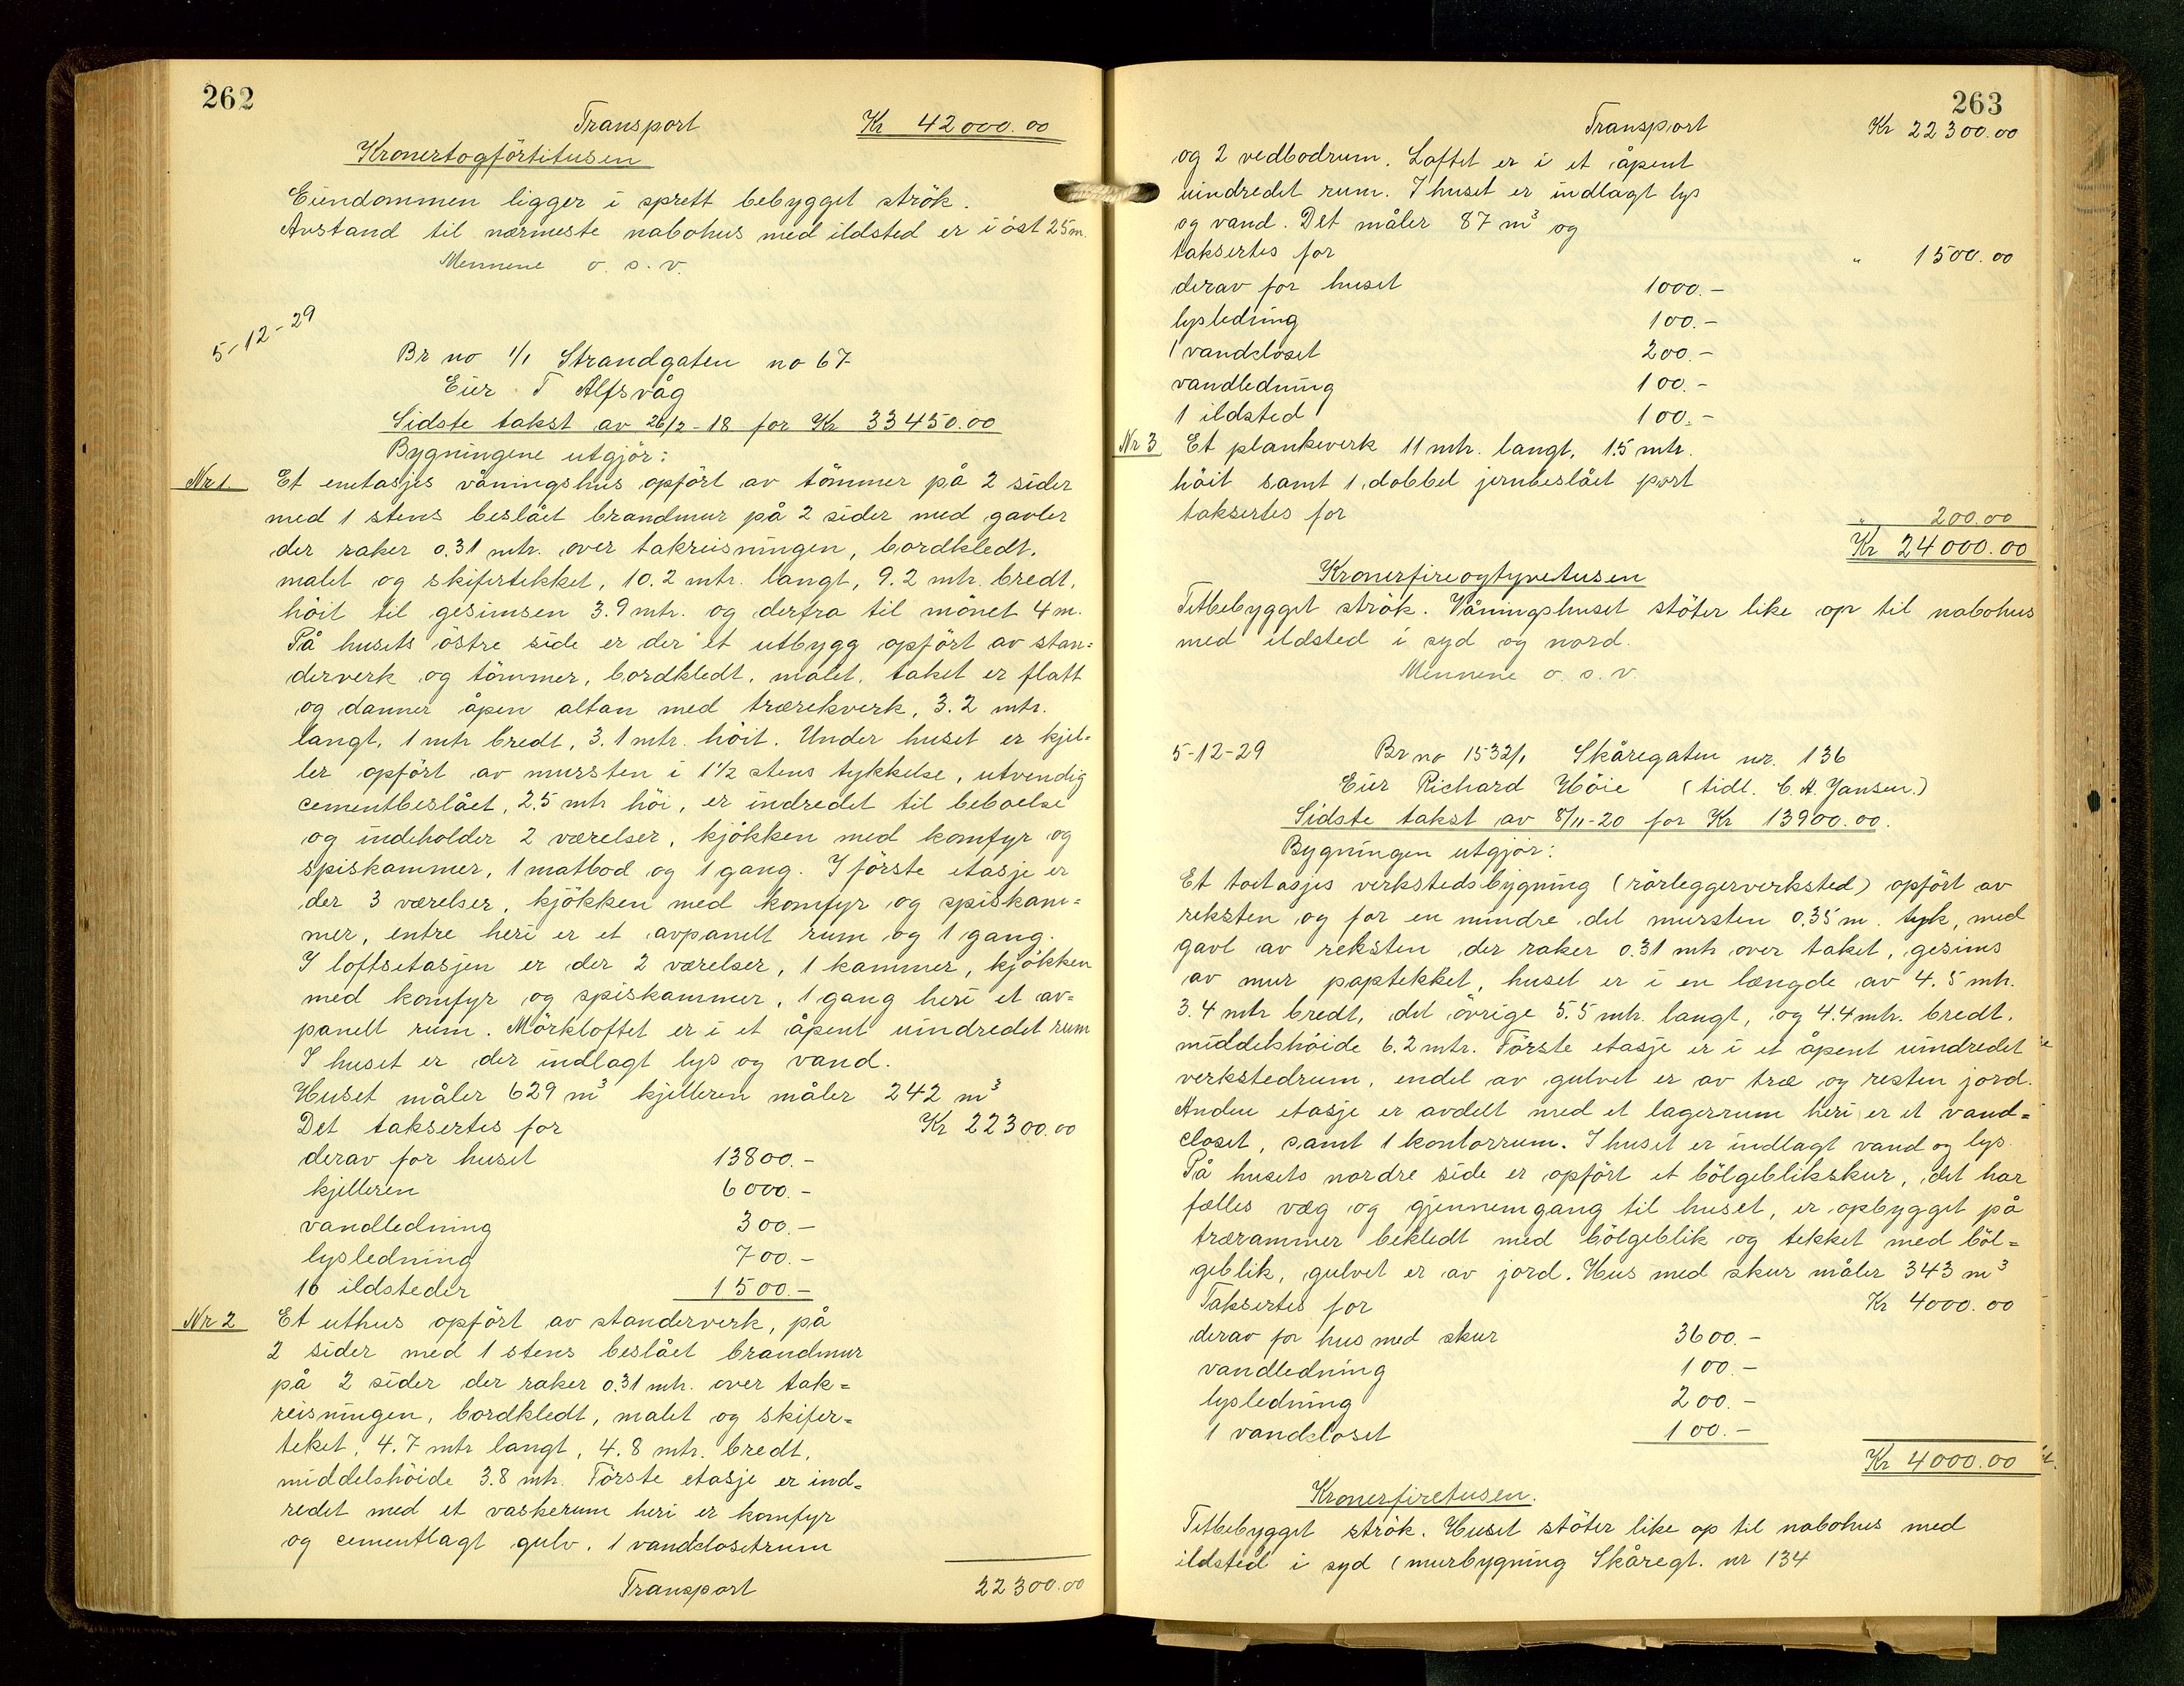 262
Transport Kr 42000.00
Kronertogförtitusen
Eiendommen ligger i sprett bebygget strök.
Avstand til nærmeste nabohus med ildsted er i öst 25 m.
Mennene o. s. v.
5-12-29
Br no 1/1 Strandgaten no 67
Eier T Alfsvåg
Sidste takst av 26/2-18 for Kr 33450.00
Bygningene utgjör:
Nr 1 Et enetasjes våningshus opfört av tömmer på 2 sider
med 1 stens beslået brandmur på 2 sider med gavler
der raker 0.31 mtr. over takreisningen, bordkledt,
malet og skifertekket, 10.2 mtr. langt, 9.2 mtr. bredt,
höit til gesimsen 3.9 mtr. og derfra til mönet 4 m.
På husets östre side er der et utbygg opfört av stan=
derverk og tömmer, bordkledt, malet, taket er flatt
og danner åpen altan med trærekverk, 3.2 mtr.
langt, 1 mtr bredt, 3.1 mtr. höit. Under huset er kjel=
ler opfört av mursten i 1 1/2 stens tykkelse, utvendig
cementbeslået, 2.5 mtr höi, er indredet til beboelse
og indeholder 2 værelser, kjökken med komfyr og
spiskammer, 1 matbod og 1 gang. I förste etasje er
der 3 værelser, kjökken med komfyr og spiskam=
mer, entre heri er et avpanelt rum og 1 gang.
I loftsetasjen er der 2 værelser, 1 kammer, kjökken
med komfyr og spiskammer, 1 gang heri et av=
panelt rum. Mörkloftet er i et åpent uindredet rum
I huset er der indlagt lys og vand.
Huset måler 629 m³ kjelleren måler 242 m³
Det taksertes for Kr 22300.00
derav for huset 13800.-
kjelleren 6000.-
vandledning 300.-
lysledning 700.-
16 ildsteder 1500.-
Nr 2 Et uthus opfört av standerverk, på
2 sider med 1 stens beslået brandmur
på 2 sider der raker 0.31 mtr. over tak=
reisningen, bordkledt, malet og skifer=
teket, 4.7 mtr langt, 4.8 mtr. bredt,
middelshöide 3.8 mtr. Förste etasje er ind=
redet med et vaskerum heri er komfyr
og cementlagt gulv. 1 vandclosetrum
Transport 22300.00
263
Transport Kr 22300.00
og 2 vedbodrum. Loftet er i et åpent
uindredet rum. I huset er indlagt lys
og vand. Det måler 87 m³ og
taksertes for " 1500.00
derav for huset 1000.-
lysledning 100.-
1 vandcloset 200.-
vandledning 100.-
1 ildsted 100.-
Nr 3 Et plankeverk 11 mtr. langt, 1.5 mtr.
höit samt 1 dobbel jernbeslået port
taksertes for " 200.00
Kr 24000.00
Kronerfireogtyvetusen
Tetbebygget strök. Våningshuset stöter like op til nabohus
med ildsted i syd og nord.
Mennene o. s. v.
5-12-29 Br no 1532/1 Skåregaten nr. 136
Eier Richard Höie (tidl. C. A. Jansen.)
Sidste takst av 8/11-20 for Kr 13900.00.
Bygningen utgjör:
Et toetasjes verkstedsbygning (rörleggerverksted) opfört av
reksten og for en mindre del mursten 0.35 m. tyk, med
gavl av reksten der raker 0.31 mtr over taket, gesims
av mur paptekket, huset er i en længde av 4.5 mtr.
3.4 mtr bredt, det övrige 5.5 mtr. langt, og 4.4 mtr. bredt,
middelshöide 6.2 mtr. Förste etasje er i et åpent uindredet
verkstedrum, endel av gulvet er av træ og resten jord.
Anden etasje er avdelt med et lagerrum heri er et vand=
closet, samt 1 kontorrum. I huset er indlagt vand og lys.
På husets nordre side er opfört et bölgeblikskur, det har
fælles væg og gjennemgang til huset, er opbygget på
trærammer bekledt med bölgeblik og tekket med böl=
geblik, gulvet er av jord. Hus med skur måler 343 m³
Taksertes for Kr 4000.00
derav for hus med skur 3600.-
vandledning 100.-
lysledning 200.-
1 vandcloset 100.-
Kr 4000.00
Kronerfiretusen.
Tetbebygget strök. Huset stöter like op til nabohus med
ildsted i syd (murbygning Skåregt. nr 134